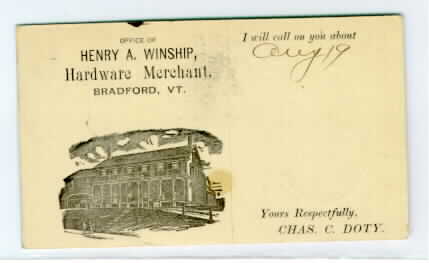 OFFICE OF
HENRY A. WINSHIP,
Hardware Merchant,
BRADFORD, VT.
I will call on you about
Aug 19
Yours Respectfully,
CHAS. C. DOTY.